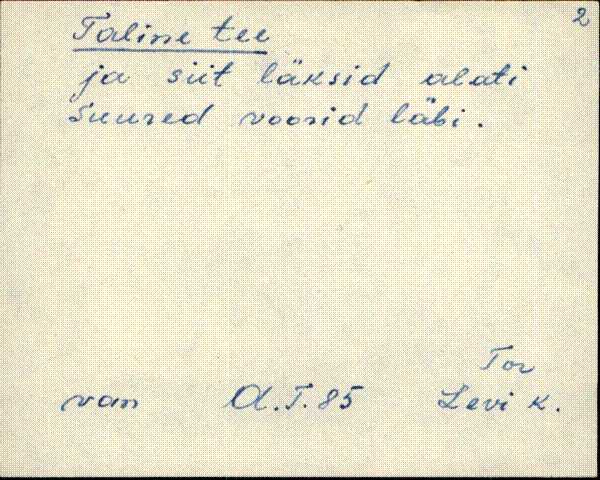 2
Taline tee
ja siit läksid alati
suured voorid läbi.
Tor
van A.T. 85 Levi k.